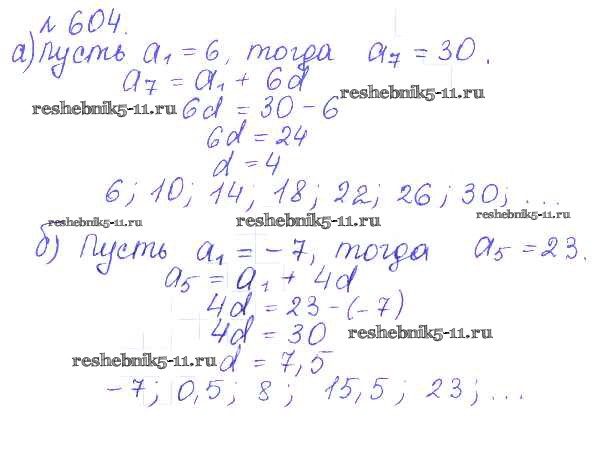 № 604.
а) Пусть a₁ = 6, тогда a₇ = 30.
a₇ = a₁ + 6d
reshebnik5-11.ru 6d = 30 - 6 reshebnik5-11.ru
6d = 24
d = 4
6; 10; 14; 18; 22; 26; 30; ...
reshebnik5-11.ru reshebnik5-11.ru reshebnik5-11.ru
б) Пусть a₁ = -7, тогда a₅ = 23.
a₅ = a₁ + 4d
4d = 23 - (-7)
4d = 30 reshebnik5-11.ru
reshebnik5-11.ru d = 7,5
-7; 0,5; 8; 15,5; 23; ...